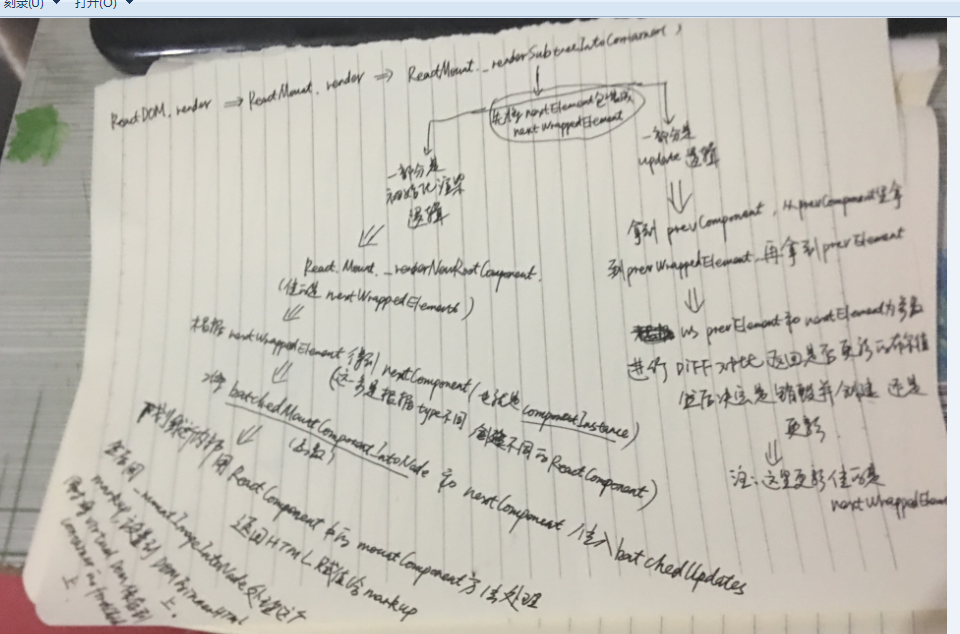 刻录(U)
打开(O)
ReactDOM.render => ReactMount.render => ReactMount._renderSubtreeIntoContainer
先将 nextElement包装成
nextWrappedElement
一部分是
初始化渲染
逻辑
React.Mount._renderNewRootComponent.
(传的是 nextWrappedElement)
根据 nextWrappedElement 得到 nextComponent(也就是componentInstance)
(这步是根据type不同 创建不同的ReactComponent)
将 batchedMountComponentIntoNode 和 nextComponent 传入batchedUpdates
(函数)
用ReactComponent中的mountComponent方法处理
返回HTML赋值给markup
然后用 _mountImageIntoNode处理这个
markup,设置到 DOM的innerHtml
上.
一部分是
update 逻辑
拿到 prevComponent, 从prevComponent里拿
到prevWrappedElement,再拿到prevElement
以 prevElement和nextElement为参数
进行 DIFF对比 返回是否更新的布尔值
然后决定是销毁并创建 还是
更新
注:这里更新传的是
nextWrappedElem